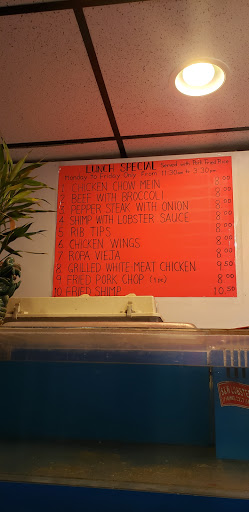 LUNCH SPECIAL Served with
Monday To Friday Only From 11:30am to 3:30pm
1 CHICKEN CHOW MEIN
2 BEEF WITH BROCCOLI 8.00
3 PEPPER STEAK WITH ONION 8.00
4 SHIMP WITH LOBSTER SAUCE 8.00
5 RIB TIPS 8.00
6 CHICKEN WINGS 8.00
7 ROPA VIEJA 8.00
8 GRILLED WHITE MEAT CHICKEN 9.50
9 FRIED PORK CHOP 8.00
10 FRIED SHIMP 10.50